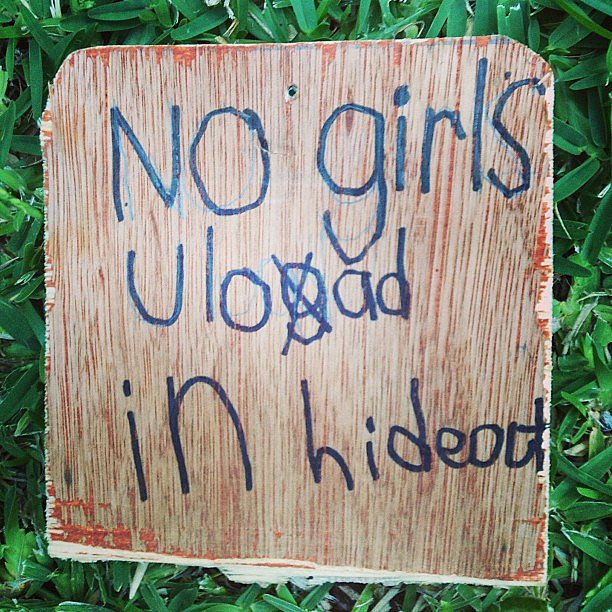 NO girls
Uload
in hideout